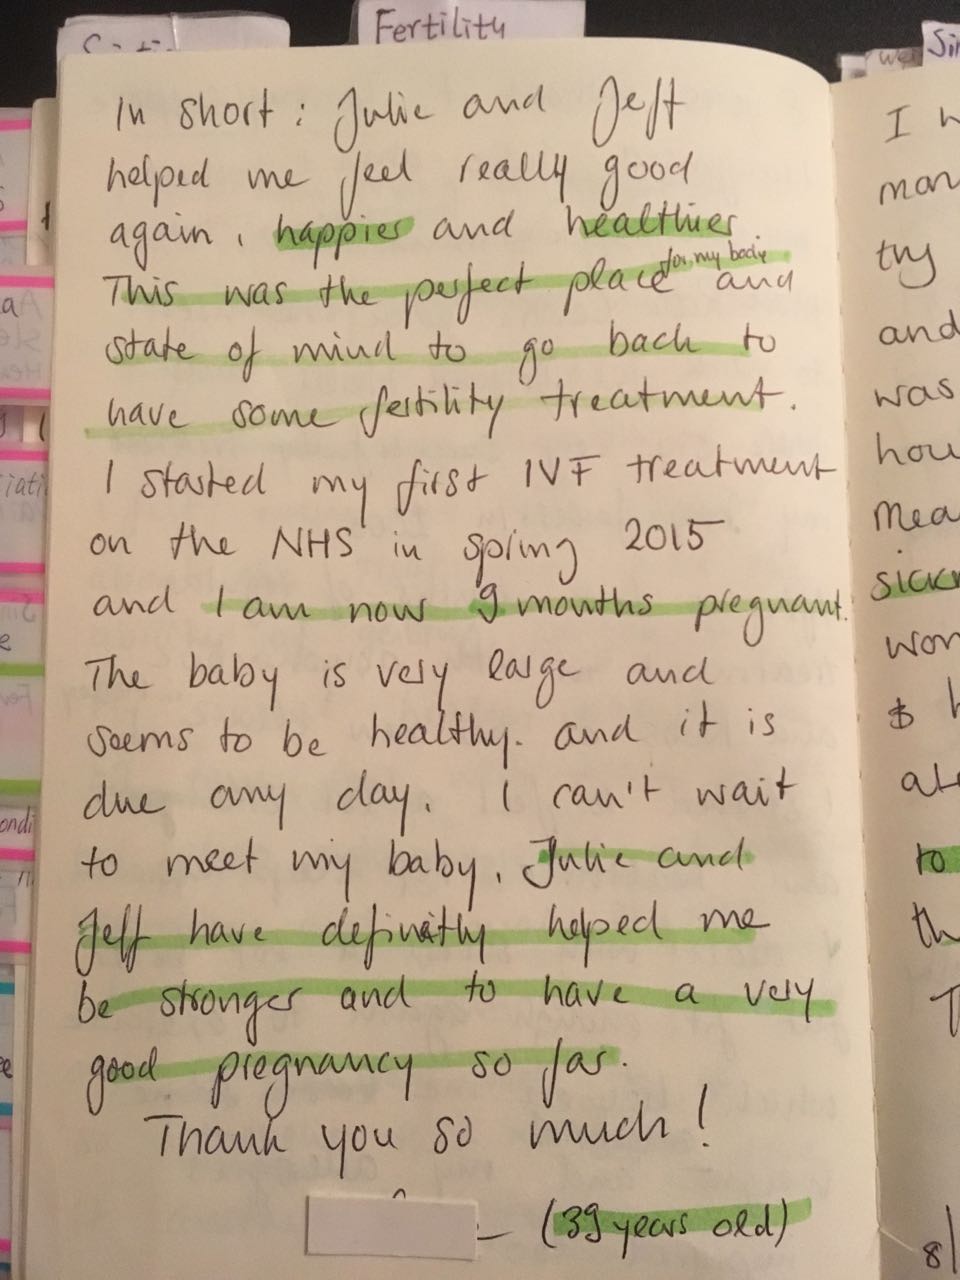 Fertility
In short : Julie and Jeff
helped me feel really good
again, happier and healthier.
for my body
This was the perfect place and
state of mind to go back to
have some fertility treatment.
I started my first IVF treatment
on the NHS in spring 2015
and I am now 9 months pregnant.
The baby is very large and
seems to be healthy. and it is
due any day. I can't wait
to meet my baby. Julie and
Jeff have definitly helped me
be stronger and to have a very
good pregnancy so far.
Thank you so much!
(39 years old)
I
try
and
was
to